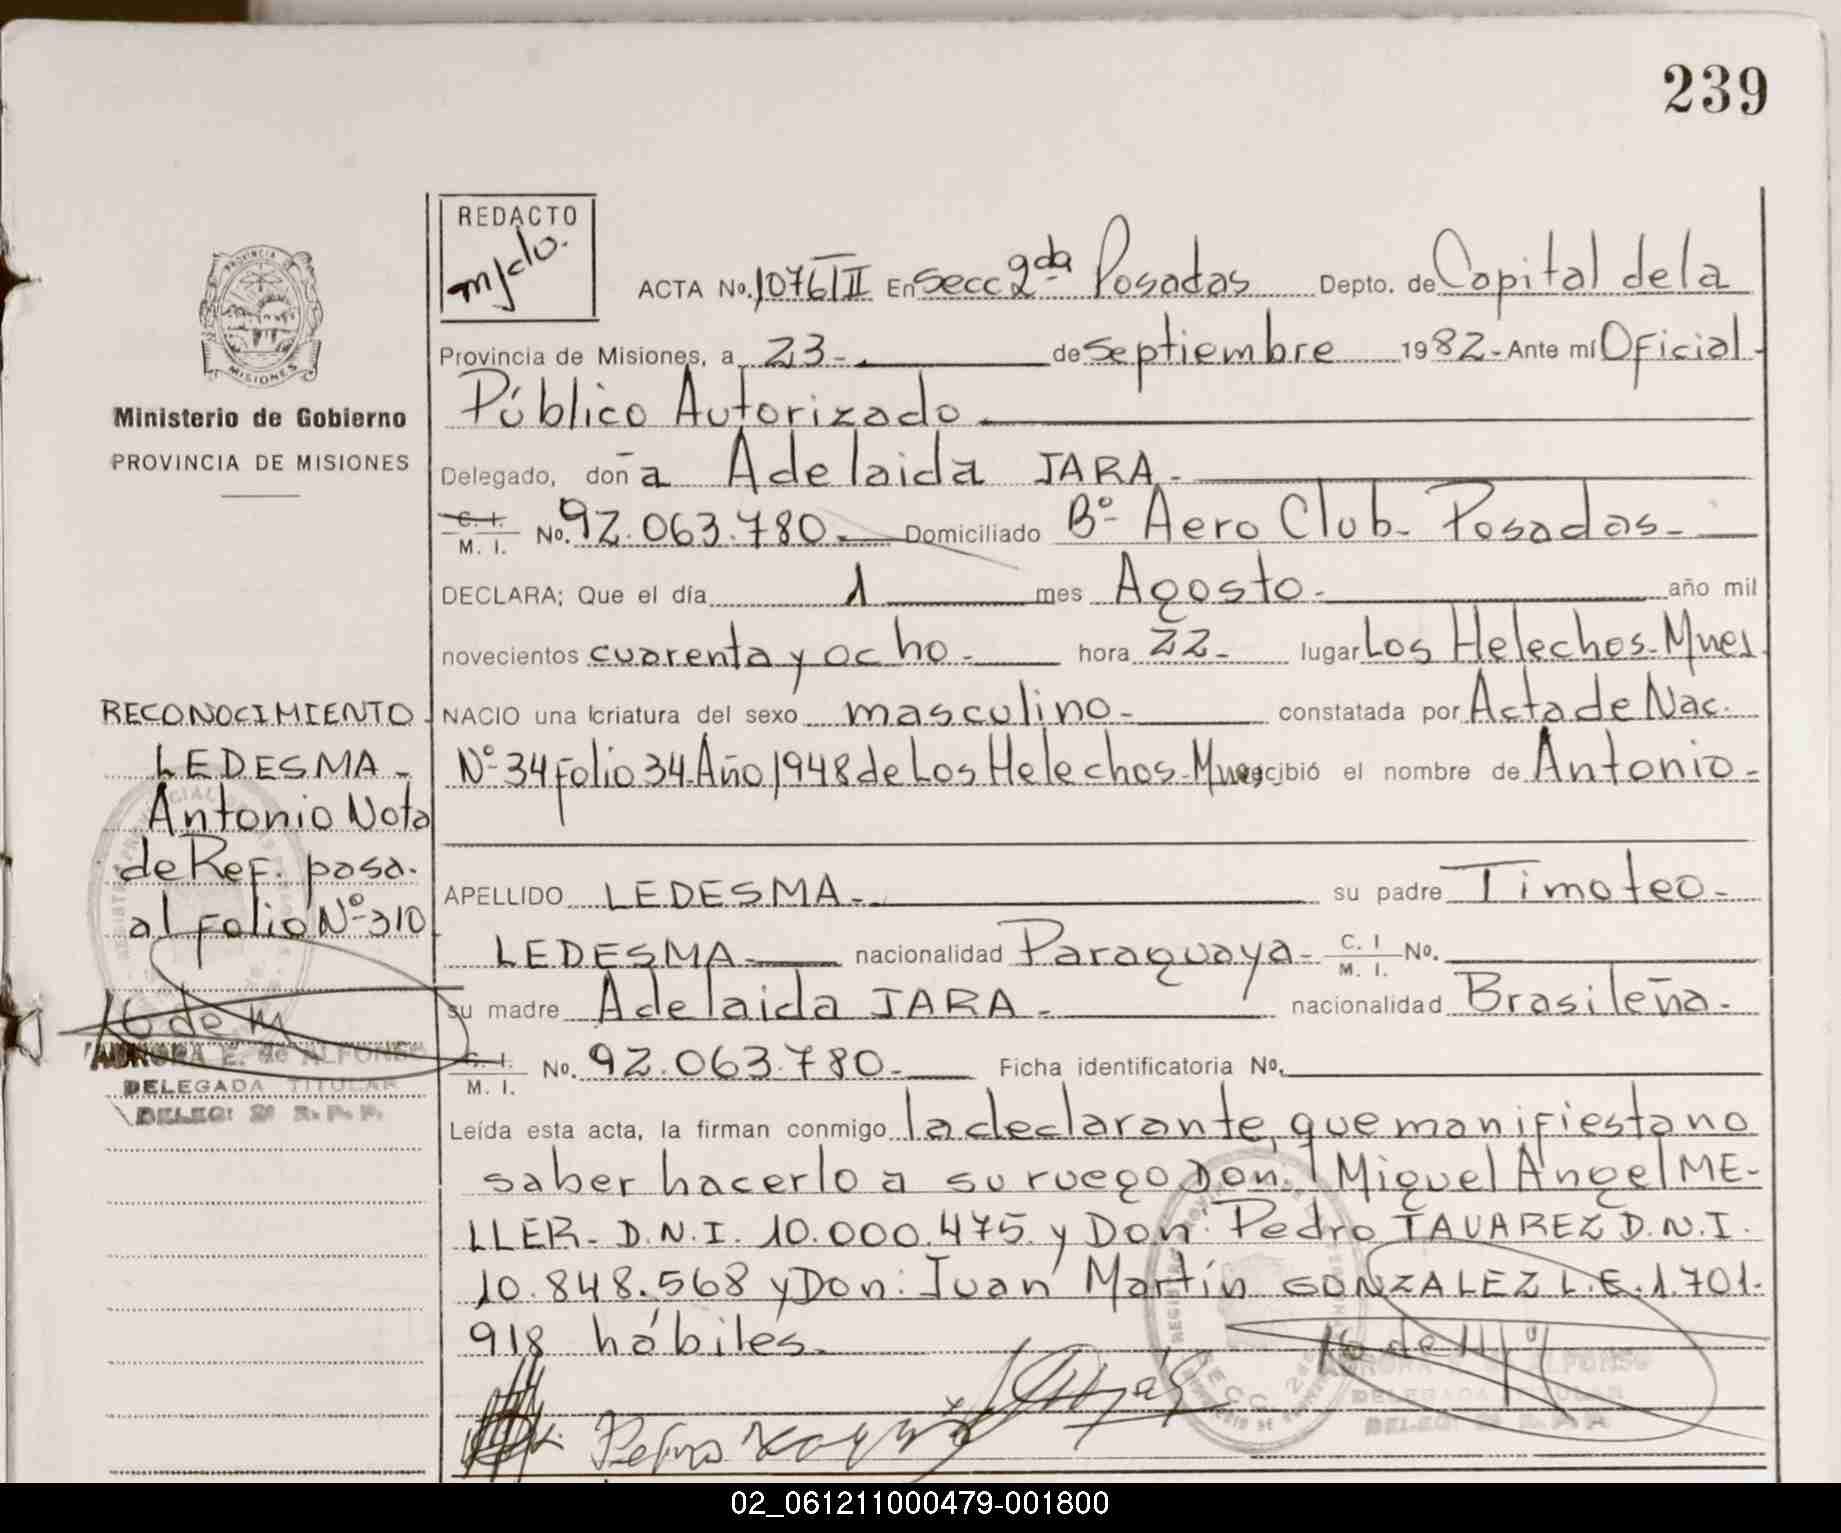 239
REDACTO
mjclo.
ACTA No. 1076 TII En Secc 2da Posadas Depto. de Capital de la
Provincia de Misiones, a 23- de Septiembre 1982- Ante mí Oficial-
Público Autorizado
Delegado, doña Adelaida JARA-
C. I.
M. I. No. 92.063.780- Domiciliado Bº Aero Club- Posadas-
DECLARA; Que el día 1 mes Agosto- año mil
novecientos cuarenta y ocho- hora 22- lugar Los Helechos- Mnes.
NACIO una criatura del sexo masculino- constatada por Acta de Nac.
Nº 34 Folio 34- Año 1948 de Los Helechos- Mnes recibió el nombre de Antonio-
APELLIDO LEDESMA- su padre Timoteo-
LEDESMA- nacionalidad Paraguaya- C. I
M. I. No.
su madre Adelaida JARA- nacionalidad Brasileña-
C. I.
M. I. No. 92.063.780- Ficha identificatoria No.
Leída esta acta, la firman conmigo la declarante, que manifiesta no
saber hacerlo a su ruego Don: Miguel Angel ME-
LLER- D.N.I. 10.000.475 y Don: Pedro TAVAREZ D.N.I.
10.848.568 y Don: Juan Martín GONZALEZ L.E. 1.701.
918 hábiles-
PROVINCIA DE
MISIONES
Ministerio de Gobierno
PROVINCIA DE MISIONES
RECONOCIMIENTO
LEDESMA-
Antonio Nota
de Ref. pasa.
al folio Nº 310
AURORA E. de ALFONSO
DELEGADA TITULAR
DELEG: 2ª R.P.P.
Pedro
AURORA E. de ALFONSO
DELEGADA TITULAR
DELEG: 2ª R.P.P.
02_061211000479-001800